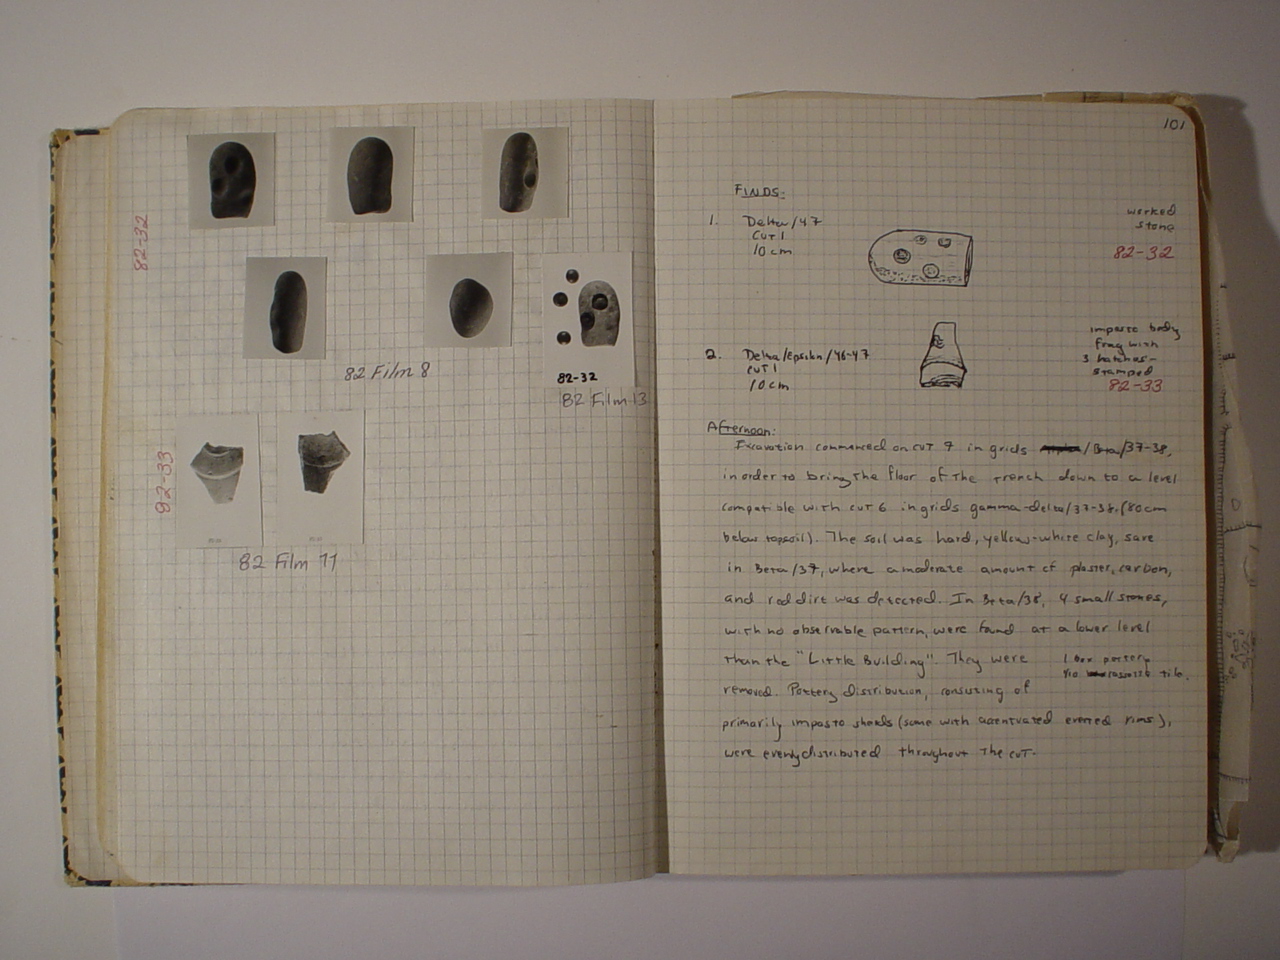 82-32
82 Film 8
82-32
82 Film 13
82-33
82 Film 11
101
FINDS:
1. Delta/47
CUT 1
10 cm
worked
stone
82-32
2. Delta/epsilon/46-47
CUT 1
10 cm
impasto body
frag with
3 hatches-
stamped
82-33
Afternoon:
Excavation commenced on cut 7 in grids /Beta/37-38,
in order to bring the floor of the trench down to a level
compatible with cut 6 in grids gamma-delta/37-38, (80cm
below topsoil). The soil was hard, yellow-white clay, save
in Beta/37, where a moderate amount of plaster, carbon,
and red dirt was detected. In Beta/38, 4 small stones,
with no observable pattern, were found at a lower level
than the "Little Building". They were
removed. Pottery distribution, consisting of
1 box pottery
tile.
primarily impasto sherds (some with accentuated everted rims),
were evenly distributed throughout the cut.